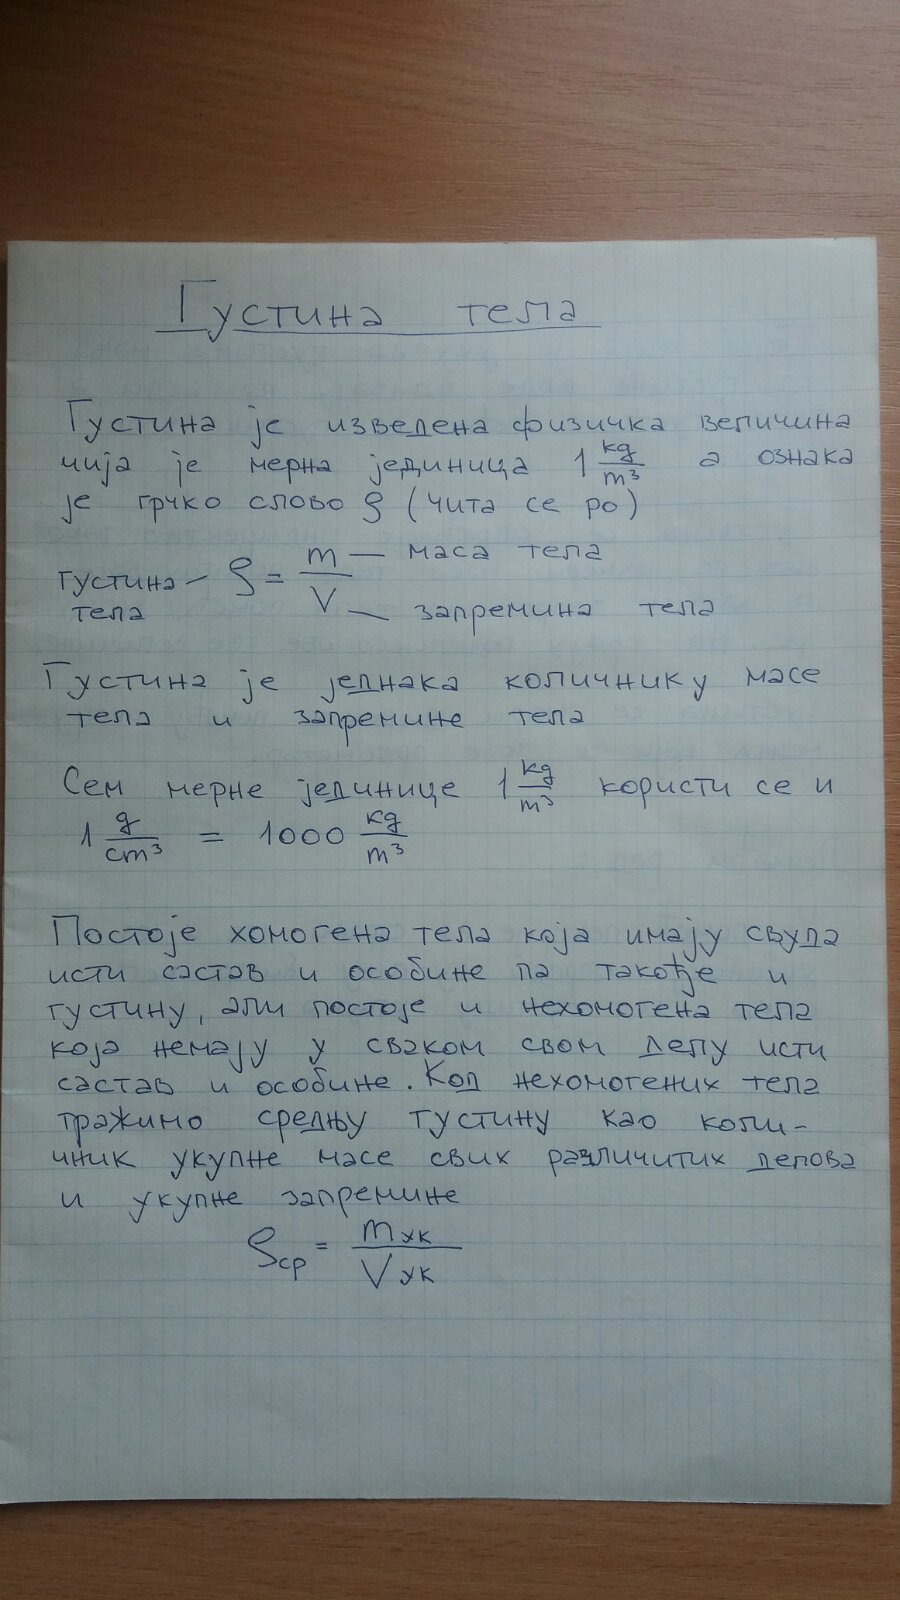 Густина тела
Густина је изведена физичка величина
чија је мерна јединица 1 kg/m³ а ознака
је грчко слово ρ (чита се ро)
густина тела – ρ = m/V
m — маса тела
V — запремина тела
Густина је једнака количнику масе
тела и запремине тела
Сем мерне јединице 1 kg/m³ користи се и
1 g/cm³ = 1000 kg/m³
Постоје хомогена тела која имају свуда
исти састав и особине па такође и
густину, али постоје и нехомогена тела
која немају у сваком свом делу исти
састав и особине. Код нехомогених тела
тражимо средњу густину као коли-
чник укупне масе свих различитих делова
и укупне запремине
ρср = mук/Vук